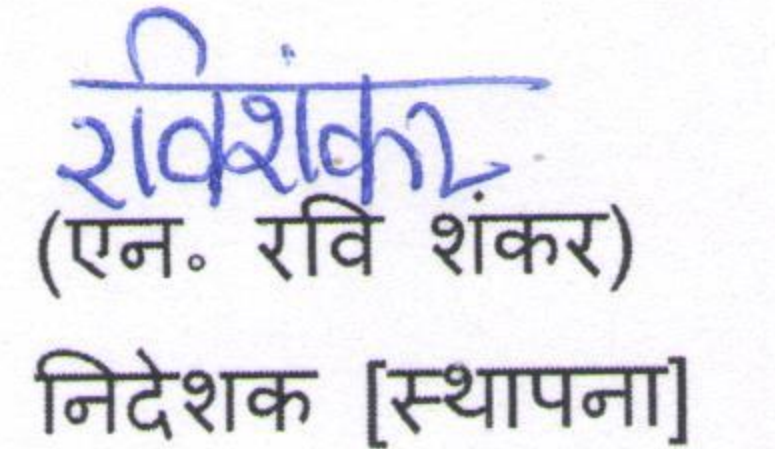 रविशंकर
(एन. रवि शंकर)
निदेशक [स्थापना]